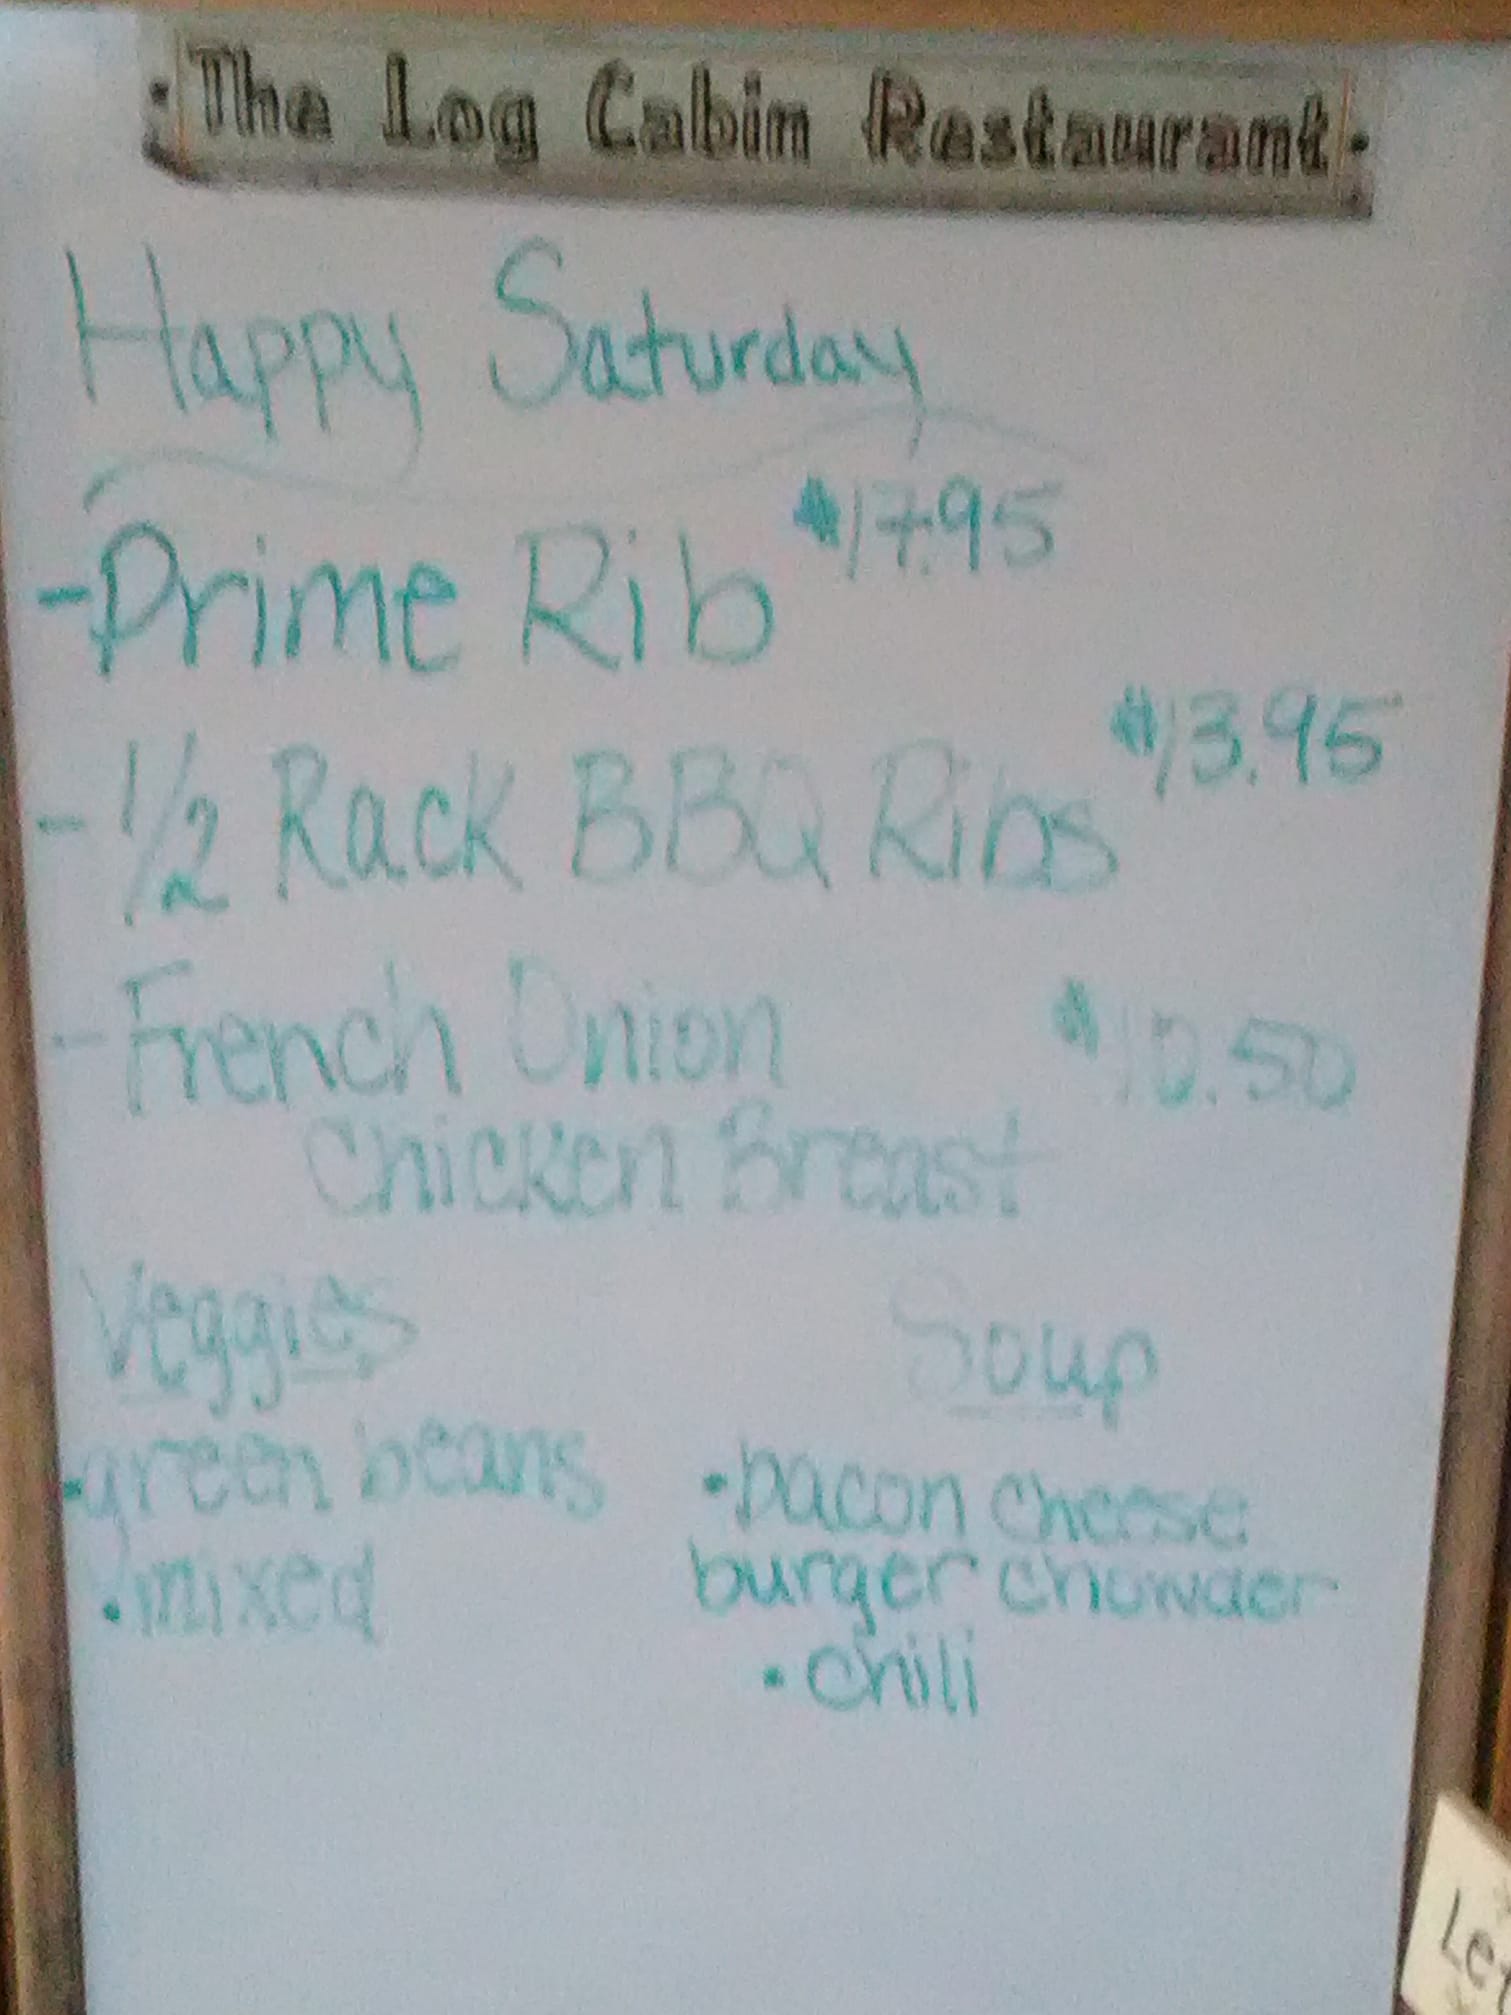 ·The Log Cabin Restaurant·
Happy Saturday
-Prime Rib $17.95
-1/2 Rack BBQ Ribs $13.95
-French Onion $10.50
Chicken Breast
Veggies
·green beans
·mixed
Soup
·bacon cheese
burger chowder
·chili